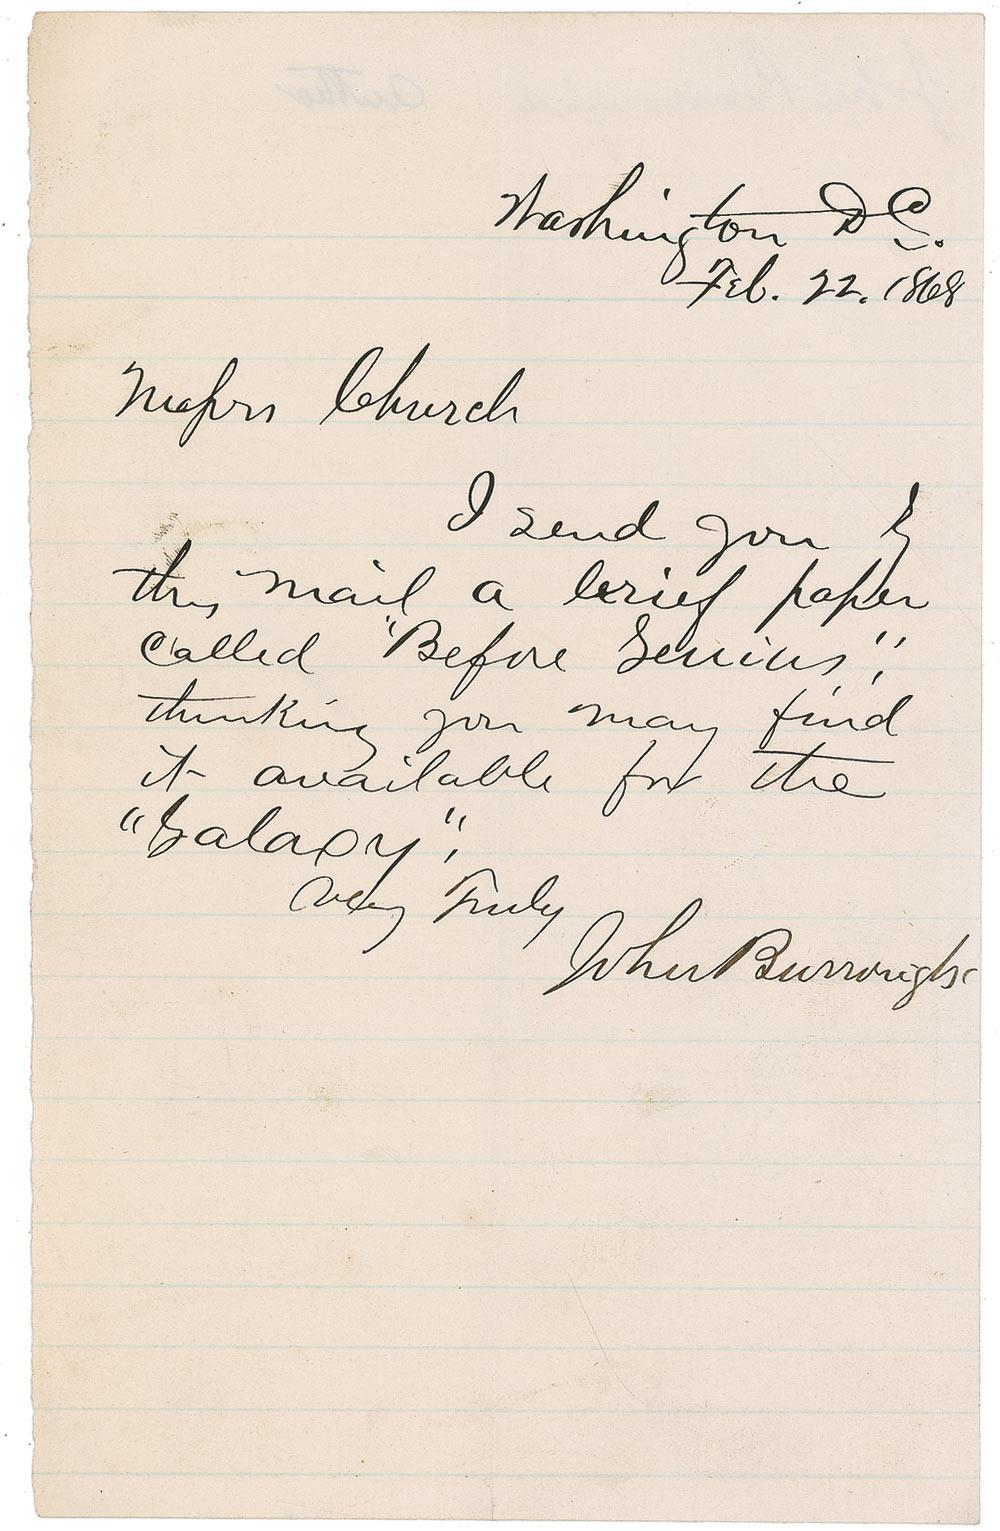 Washington D.C.
Feb. 22. 1868
Messrs Church
I send you by
this mail a brief paper
called "Before Genius",
thinking you may find
it available for the
"Galaxy".
Very Truly
John Burroughs